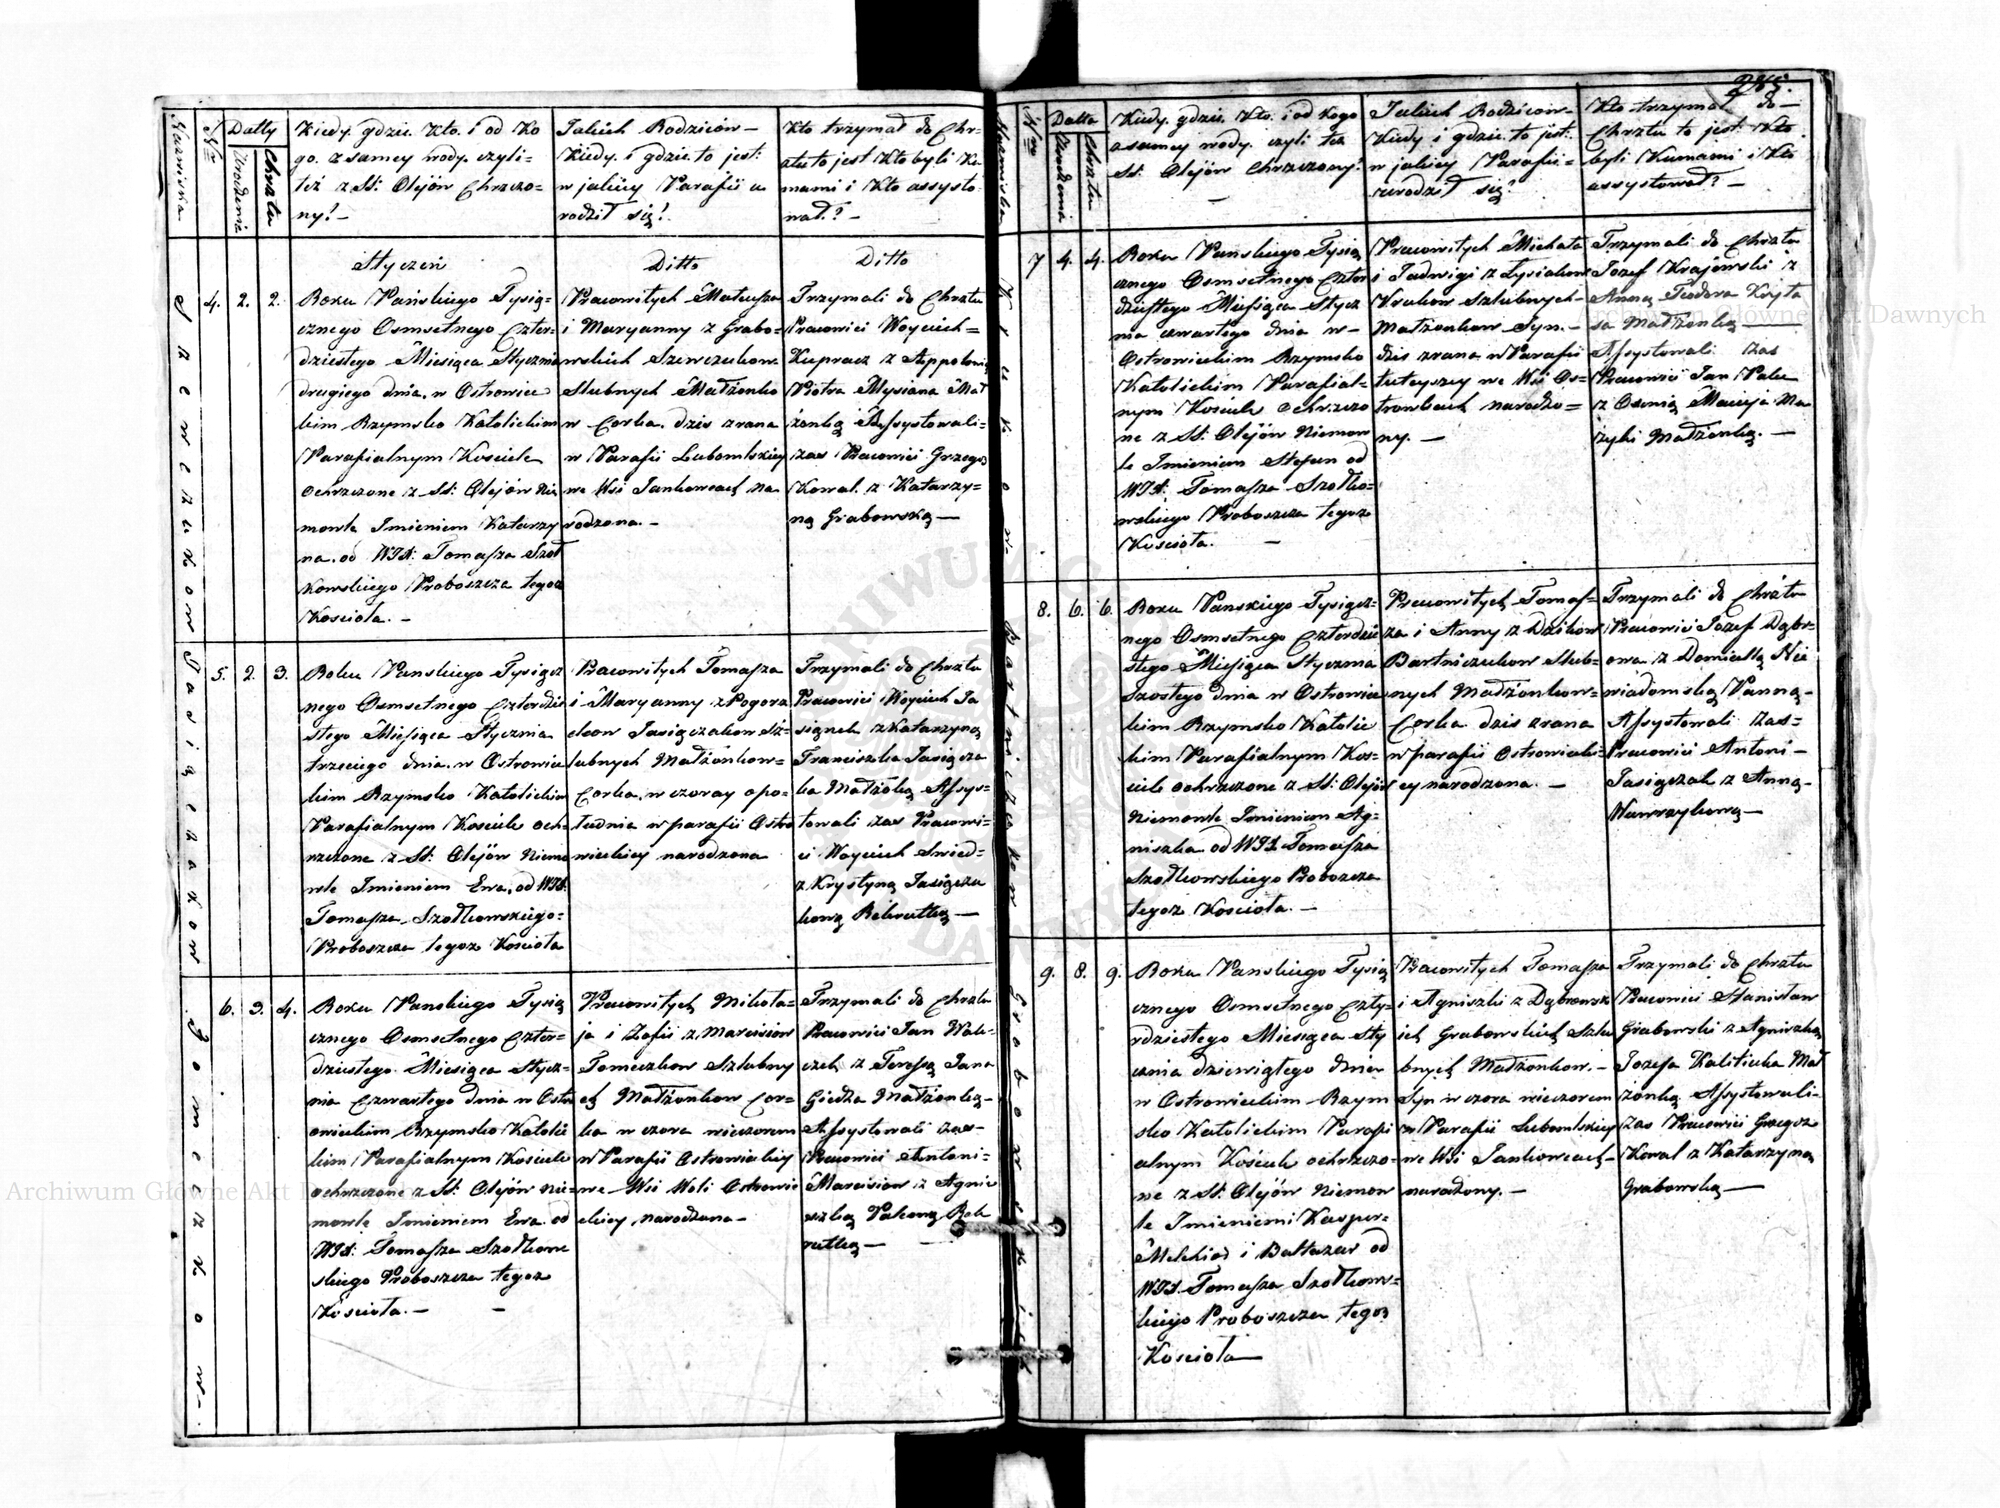 Nazwiska
Nro
Datty
Urodzenia
Chrztu
Kiedy. gdzie. Kto. i od Ko
go. z samey wody. czyli-
też z SS: Olejów Chrzczo-
ny? -
Jakich Rodziców -
Kiedy. i gdzie. to jest:
w jakiey Parafii u
rodził się?
Kto trzymał do Chr-
ztu to jest Kto byli Ku
mami i Kto assysto
wał? -
Styczeń
Ditto
Ditto
Szewczukow
4. 2. 2.
Roku Pańskiego Tysią-
cznego Osmsetnego Czter-
dziestego Miesiąca Stycznia
drugiego dnia. w Ostrowiec
kim Rzymsko Katolickim
Parafialnym Kosciele
ochrzczone z SS: Olejów Nie
mowle Imieniem Katarzy
na. od WJX: Tomasza Szoł
kowskiego Proboszcza tegoż
Kosciola. -
Pracowitych Mateusza
i Maryanny z Grabo-
wskich Szewczukow
Slubnych Małżonko
w Corka. dzis zrana
w Parafii Lubomlskiey
we Wsi Jankowcach na
rodzona. -
Trzymali do Chrztu
Pracowici Woyciech-
Kupracz z Appolonią
Piotra Mysiana Mał
żonką Assystowali-
zas Pracowici Grzegoż
Kowal. z Katarzy-
ną Grabowską -
Jasiączakow
5. 2. 3.
Roku Panskiego Tysiącz
nego Osmsetnego Czterdzie
stego Miesiąca Stycznia
trzeciego dnia. w Ostrowiec
kim Rzymsko Katolickim
Parafialnym Kosciele och
rzczone z SS: Olejów Niemo
wle Imieniem Ewa. od WJX.
Tomasza Szodkowskiego-
Proboszcza tegoz Kosciola
Pracowitych Tomasza
i Maryanny z Pogorz
elcow Jasiączakow Sz-
lubnych Małżonkow-
Corka. wczoray opo-
łudnia w parafii Ostro
wieckiey narodzona
Trzymali do Chrztu
Pracowici Woyciech Ja
siączek z Katarzyną
Franciszka Jasiącza
ka Małżonką Assys-
towali zas Pracowi-
ci Woyciech Snied-
z Krystyną Jasiącza
kową Rekrutką -
Tomeczkow
6. 3. 4.
Roku Panskiego Tysią
cznego Osmsetnego Czter-
dziestego Miesiąca Stycz-
nia Czwartego dnia w Ostr
owieckim Rzymsko Katolic
kim Parafialnym Kosciele
ochrzczone z SS: Olejów Nie-
mowle Imieniem Ewa. od
WJX: Tomasza Szodkow
skiego Proboszcza tegoz
Kosciola. -
Pracowitych Mikoła-
ja i Zofii z Marcisiow
Tomeczkow Szlubny
ch Małżonkow Cor-
ka w czora wieczorem
w Parafii Ostrowieckiey
we Wsi Woli Ostrowie
ckiey, narodzona -
Trzymali do Chrztu
Pracowici Jan Wal-
czek z Teressą Jana
Giedza Małżonką-
Assystowali zas-
Pracowici Antoni-
Marcisiow z Agnie
szką Pakuną Rek
rutką -
285.
Nazwiska
Nro
Datta
Urodzenia
Chrztu
Kiedy. gdzie. Kto. i od Kogo
z samey wody. czyli też
SS. Olejów Chrzczony?
Jakich Rodziców-
Kiedy i gdzie. to jest:
w jakiey Parafii-
urodził się?
Kto trzymał do-
Chrztu to jest: Kto
byli Kumami i Kto
assystował? -
Krukow
7 4. 4.
Roku Panskiego Tysią
cznego Osmsetnego Czter
dziestego Miesiąca Stycz
nia czwartego dnia w-
Ostrowieckim Rzymsko
Katolickim Parafial-
nym Kosciele Ochrzczo
ne z SS: Olejów Niemow
le Imieniem Stefan od
WJX. Tomasza Szodko-
wskiego Proboszcza tegoz
Kosciola. -
Pracowitych Michała
i Jadwigi z Łysiakow
Krukow Szlubnych-
Małżonkow Syn. -
dzis zrana w Parafii
tuteyszey we Wsi Os-
trowkach narodzo-
ny. -
Trzymali do Chrztu
Jozef Krajewski z
Anną Teodora Koyta
sa Małżonką -
Assystowali zas
Pracowici Jan Palu
z Osmią Macieja Ma
zyki Małżonką. -
Bartniczukow
8. 6. 6.
Roku Panskiego Tysiącz-
nego Osmsetnego Czterdzie
stego Miesiąca Stycznia
Szostego dnia w Ostrowiec
kim Rzymsko Katolic
kim Parafialnym Kos-
ciele ochrzczone z SS: Olejów
Niemowle Imieniem Ag-
niszka. od WJX Tomasza
Szodkowskiego Proboszcza
tegoz Kosciola. -
Pracowitych Tomas-
za i Anny z Dzikow
Bartniczukow Slub-
nych Małżonkow-
Corka dzis zrana
w parafii Ostrowiecki-
ey narodzona. -
Trzymali do Chrztu
Pracowici Jozef Dąbr-
owa z Domicellą Nie
wiadomską Panną-
Assystowali zas-
Pracowici Antoni-
Jasiączak z Anną-
Wawrzykową -
Grabowskich
9. 8. 9.
Roku Panskiego Tysią
cznego Osmsetnego Czte-
rdziestego Miesiąca Sty
cznia dziewiątego dnia
w Ostrowieckim Rzym
sko Katolickim Parafi
alnym Kościele ochrzczo-
ne z SS. Olejów Niemow
le Imieniemi Kasper-
Melchior i Baltazar od
WJX. Tomasza Szodkows-
kiego Proboszcza tegoz
Kosciola -
Pracowitych Tomasza
i Agniszki z Dąbrowsk
ich Grabowskich Szlu
bnych Małżonkow. -
Syn w czora wieczorem
w Parafii Lubomlskiey
we Wsi Jankowcach-
narodzony. -
Trzymali do Chrztu
Pracowici Stanisław
Grabowski z Agniszką
Jozefa Kaliticka Mał
żonką Assystowali-
zas Pracowici Grzegoż
Kowal z Katarzyną
Grabowską -
Archiwum Główne Akt Dawnych
Archiwum Główne Akt Dawnych